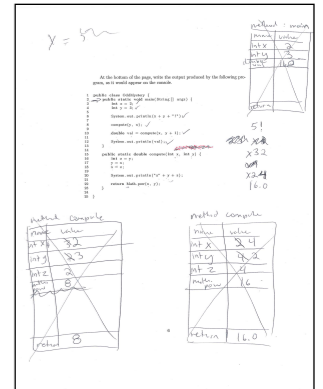 method: main
name value
int x 2
int y 3
double val 16.0
return
At the bottom of the page, write the output produced by the following pro-
gram, as it would appear on the console.
public static void main(String[] args) {
int x = 2;
System.out.println(x + y + "!");
double val = compute(x, y + 1);
System.out.println(val);
}
public static double compute(int x, int y) {
int z = y;
y = x;
x = z;
return Math.pow(x, y);
}
}
5!
x32
x24
16.0
method compute
name value
int x 3 2
int y 2 3
int z 2
math pow 8
return 8
method compute
name value
int x 2 4
int y 4 2
int z 4
math pow 16
return 16.0